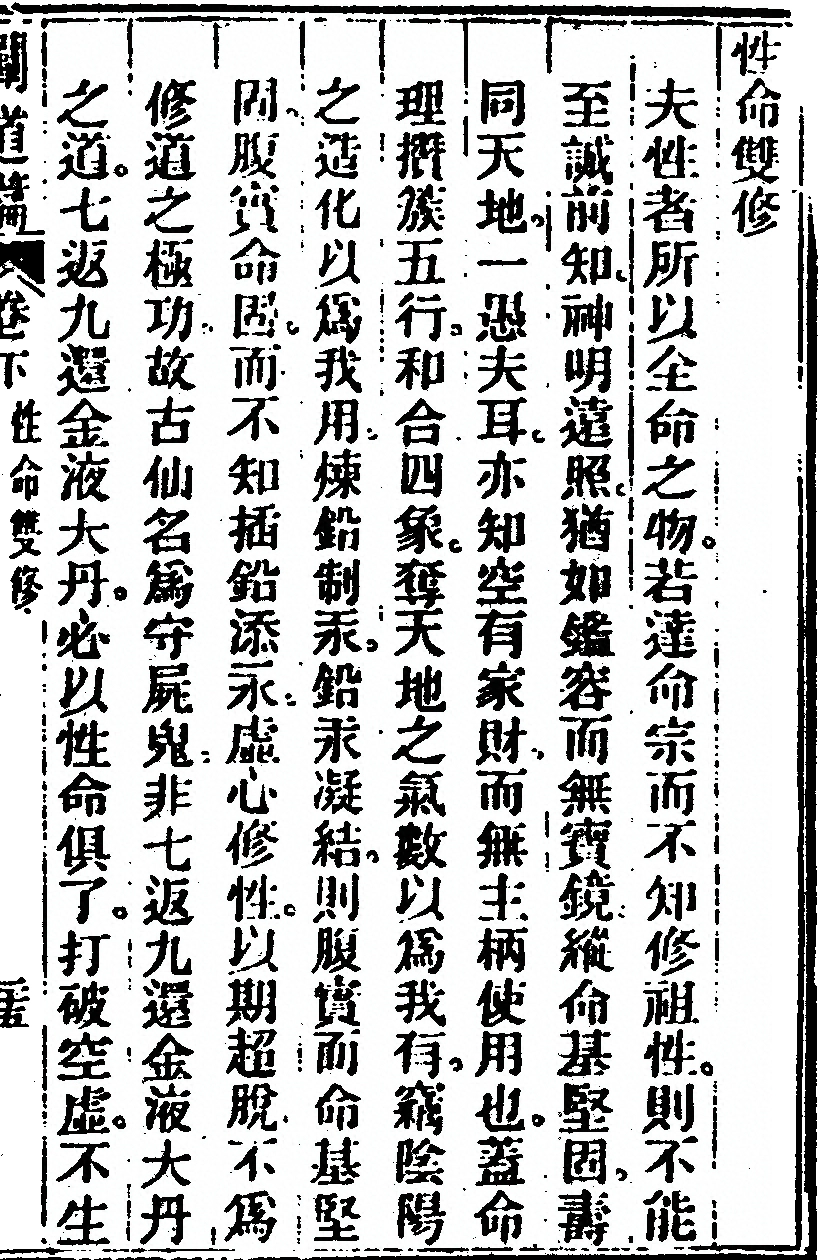 性命雙修
夫性者所以全命之物。若達命宗而不知修祖性。則不能
至誠前知。神明遠照。猶如鑑容而無寶鏡。縱命基堅固。壽
同天地。一愚夫耳。亦知空有家財。而無主柄使用也。蓋命
理攢簇五行。和合四象。奪天地之氣數以爲我有。竊陰陽
之造化以爲我用。煉鉛制汞。鉛汞凝結。則腹實而命基堅
固。腹實命固。而不知插鉛添汞。虛心修性。以期超脫。不爲
修道之極功。故古仙名爲守屍鬼。非七返九還金液大丹
之道。七返九還金液大丹。必以性命俱了。打破空虛。不生
闡道篇 卷下 性命雙修